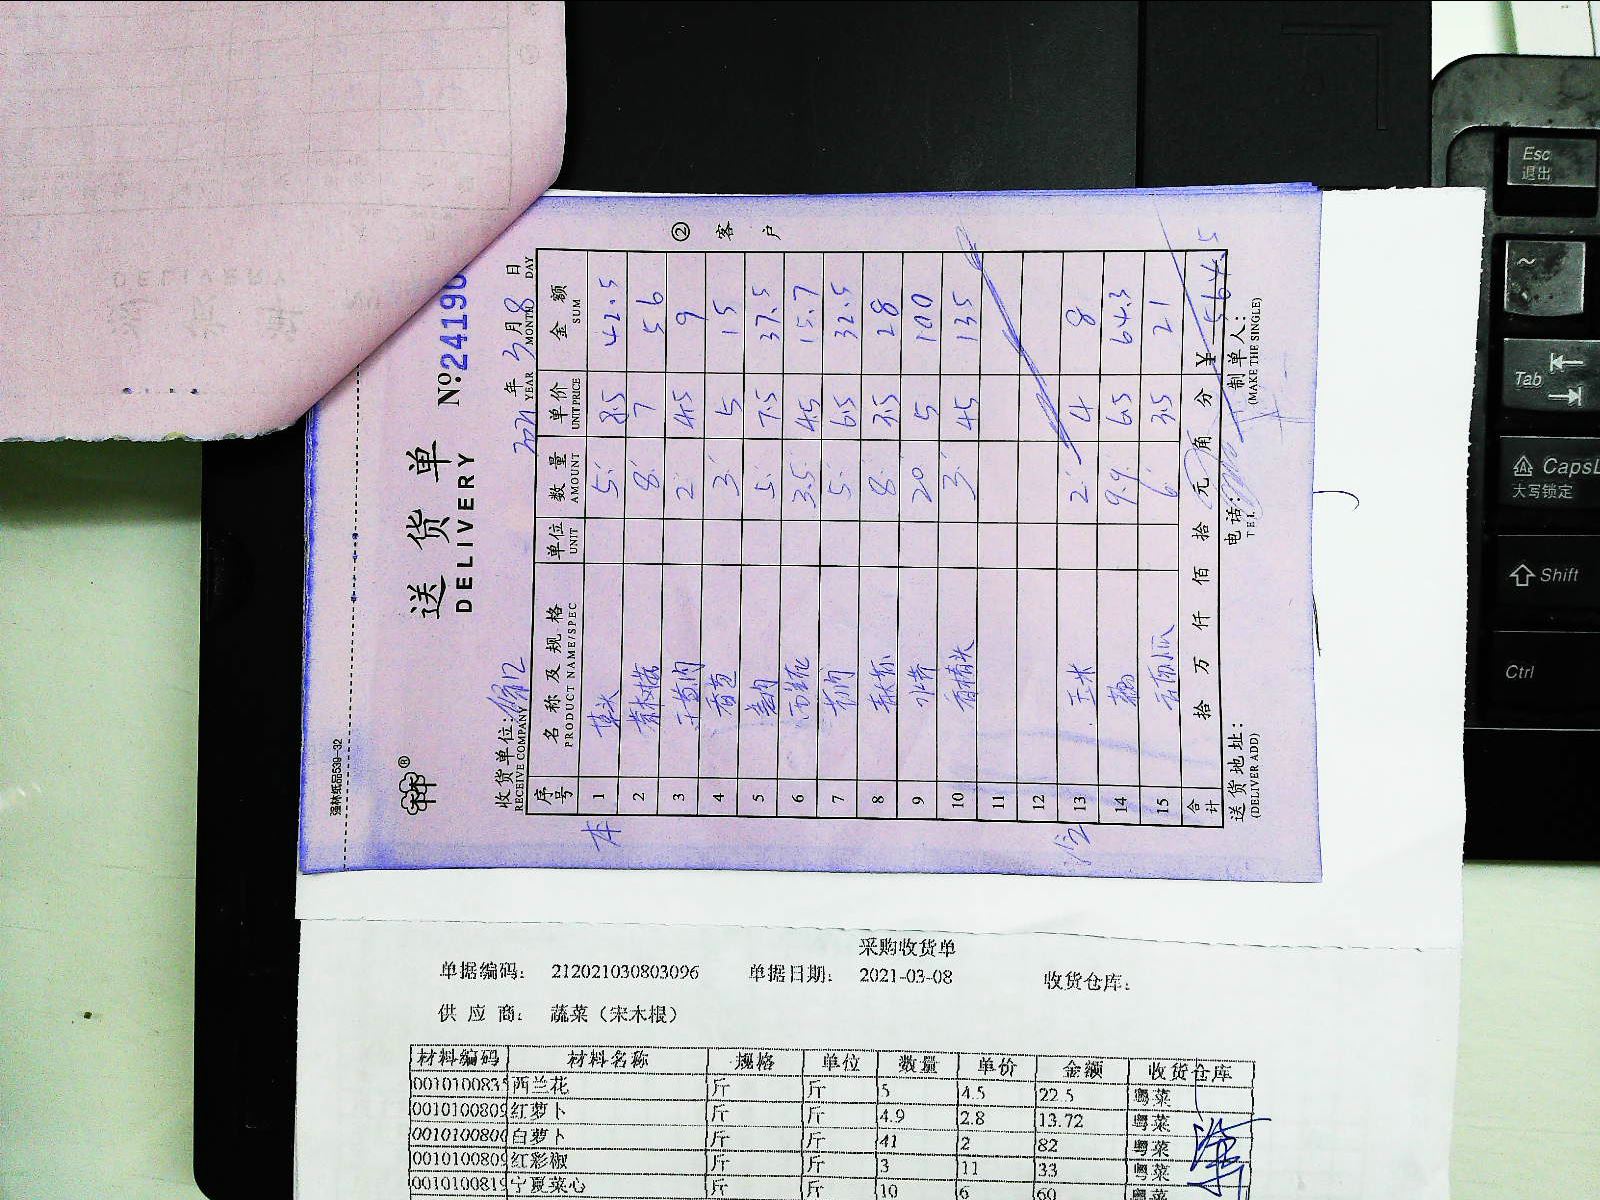 强林纸品539-32
®
送 货 单
DELIVERY
№ 24190
② 客 户
收货单位:
RECEIVE COMPANY
年 3 月 8 日
YEAR MONTH DAY
序号 名 称 及 规 格 单位 数 量 单 价 金 额
PRODUCT NAME/SPEC UNIT AMOUNT UNIT PRICE SUM
1 5 8.5 42.5
2 8 7 56
3 2 4.5 9
4 香芭 3 5 15
5 5 7.5 37.5
6 西兰花 3.5 4.5 15.7
7 5 6.5 32.5
8 8 3.5 28
9 20 5 100
10 3 45 135
11
12
13 玉米 2 4 8
14 9.9 6.5 64.3
15 6 3.5 21
合计 拾 万 仟 佰 拾 元 角 分 ¥ 564.5
送货地址: 电话: 制单人:
(DELIVER ADD) TEL (MAKE THE SINGLE)
采购收货单
单据编码: 212021030803096 单据日期: 2021-03-08 收货仓库:
供 应 商: 蔬菜(宋木根)
材料编码 材料名称 规格 单位 数量 单价 金额 收货仓库
0010100835 西兰花 斤 斤 5 4.5 22.5 粤菜
0010100809 红萝卜 斤 斤 4.9 2.8 13.72 粤菜
0010100806 白萝卜 斤 斤 41 2 82 粤菜
0010100809 红彩椒 斤 斤 3 11 33 粤菜
0010100819 宁夏菜心 斤 斤 10 6 60 粤菜
Esc
退出
~
Tab
CapsL
大写锁定
Shift
Ctrl